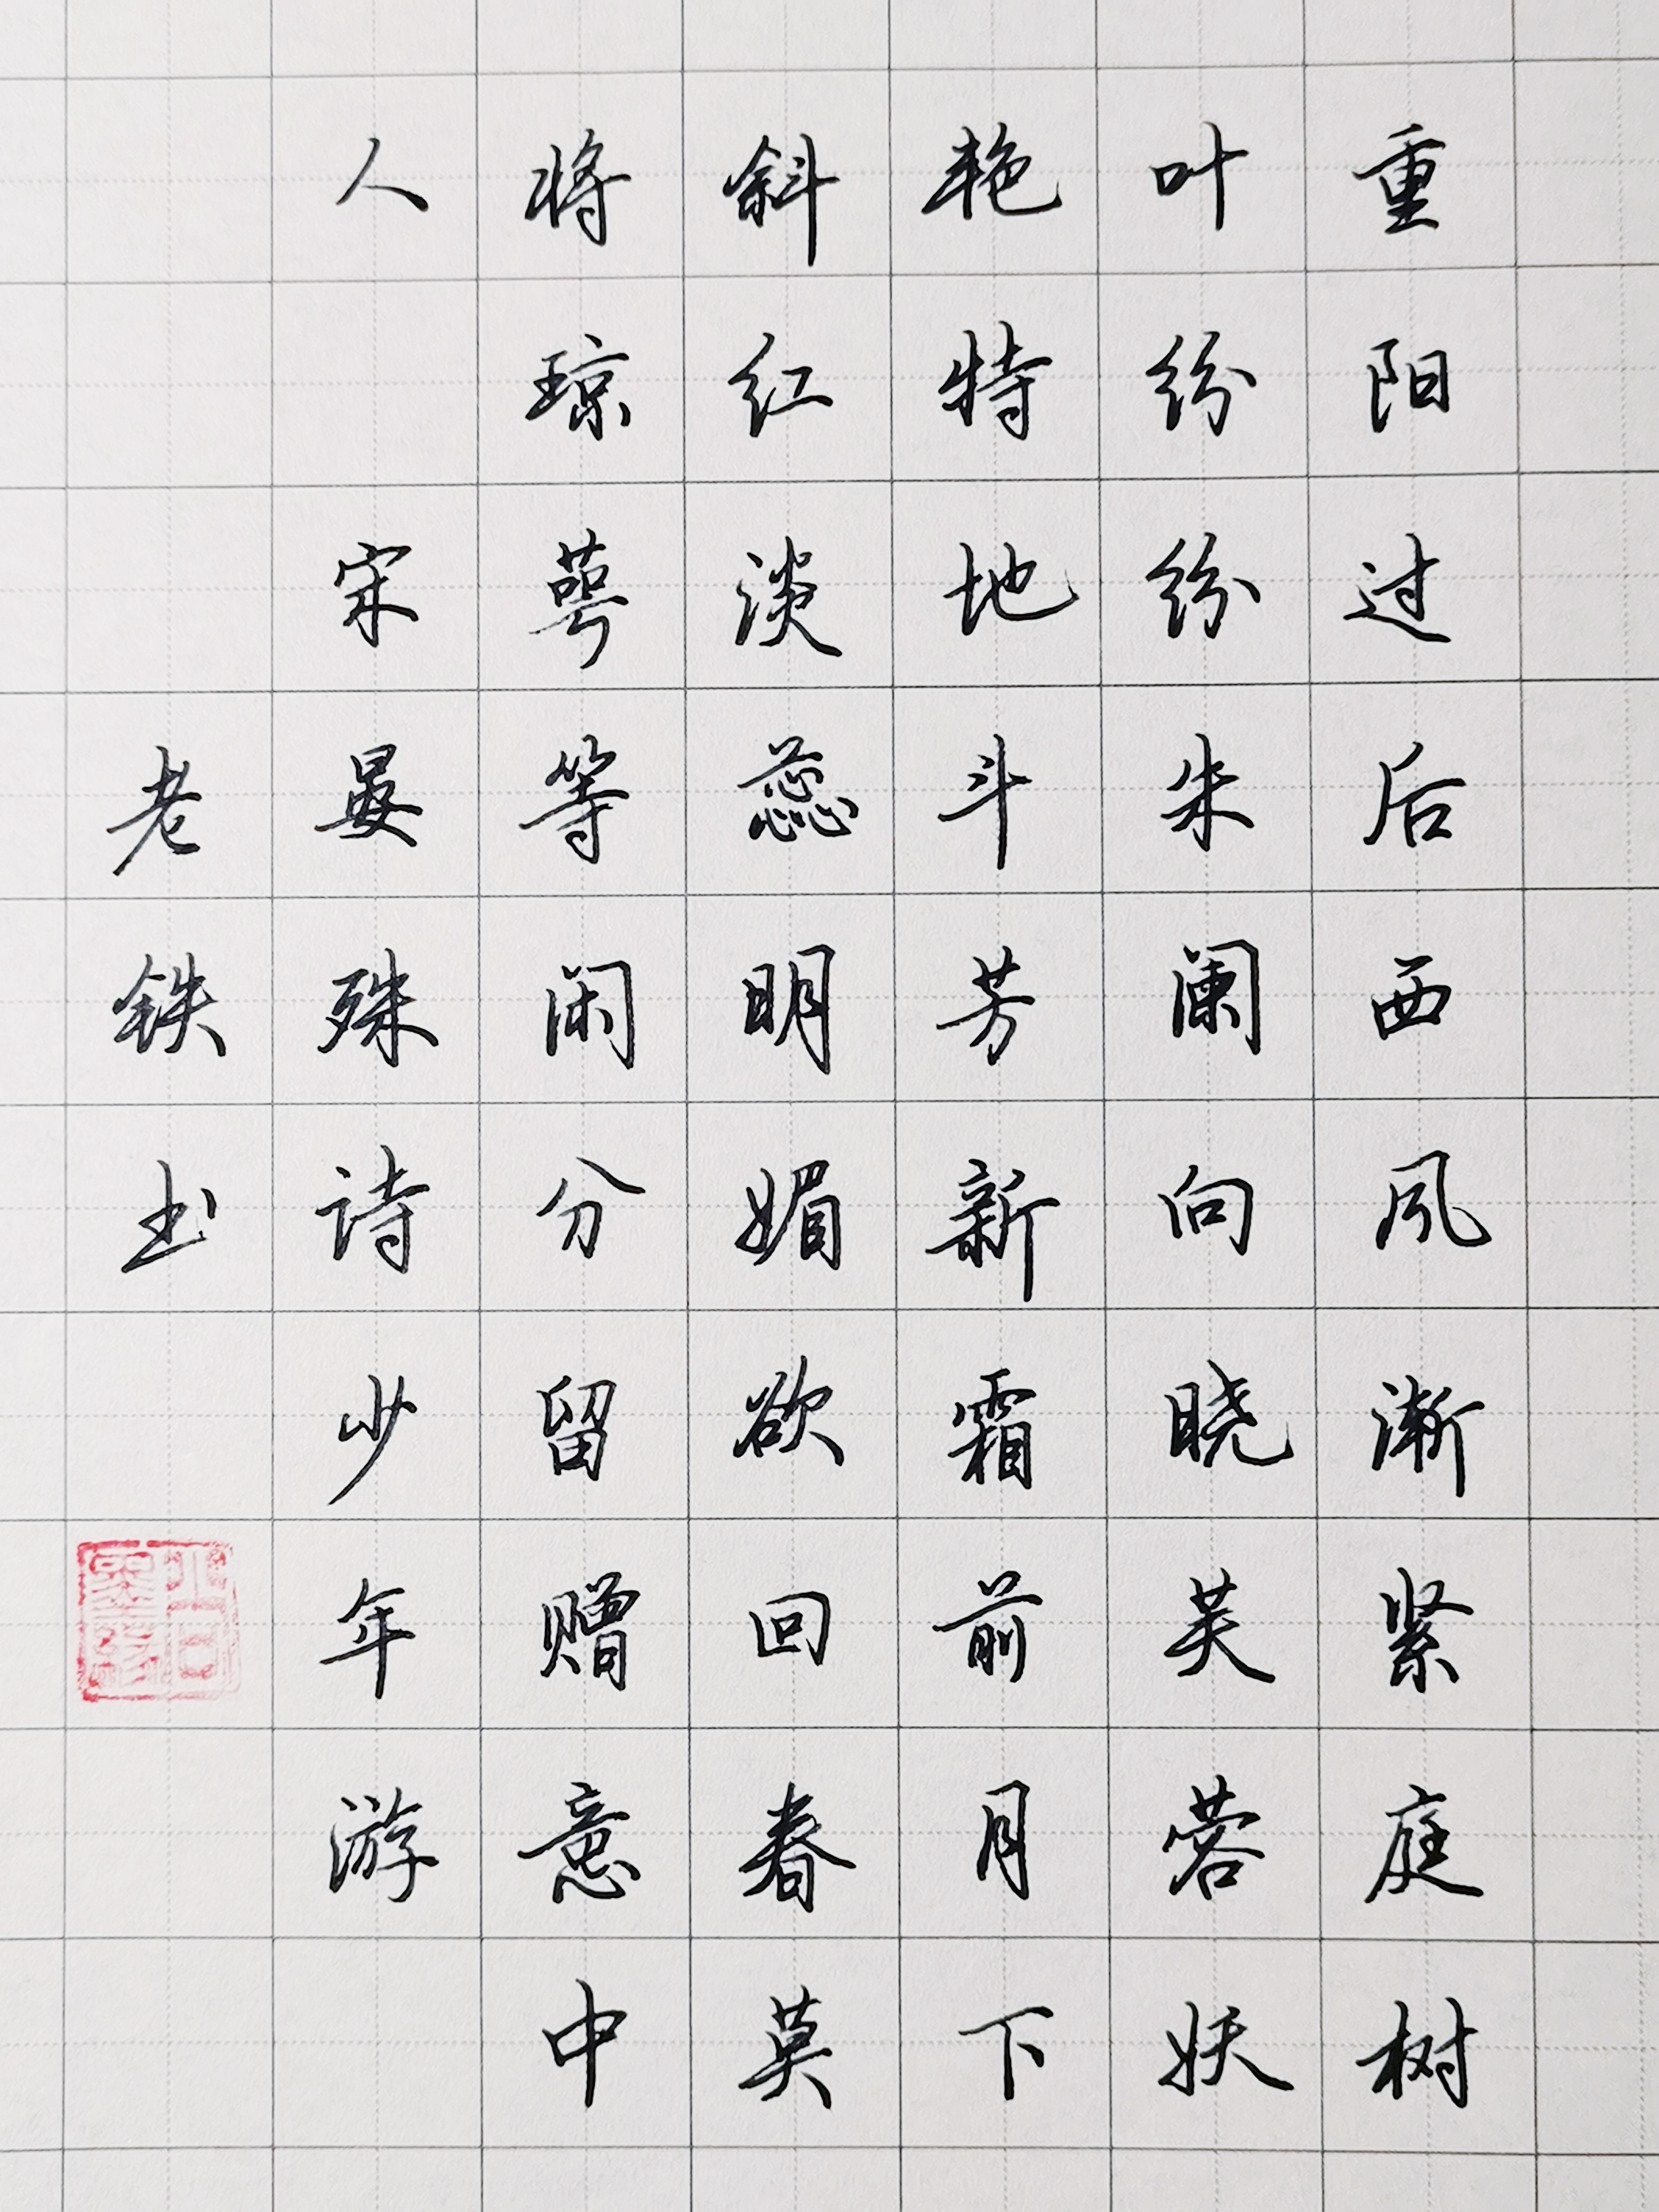 重阳过后西风渐紧庭树
叶纷纷朱阑向晓芙蓉妖
艳特地斗芳新霜前月下
斜红淡蕊明媚欲回春莫
将琼萼等闲分留赠意中
人
宋晏殊诗少年游
老铁书